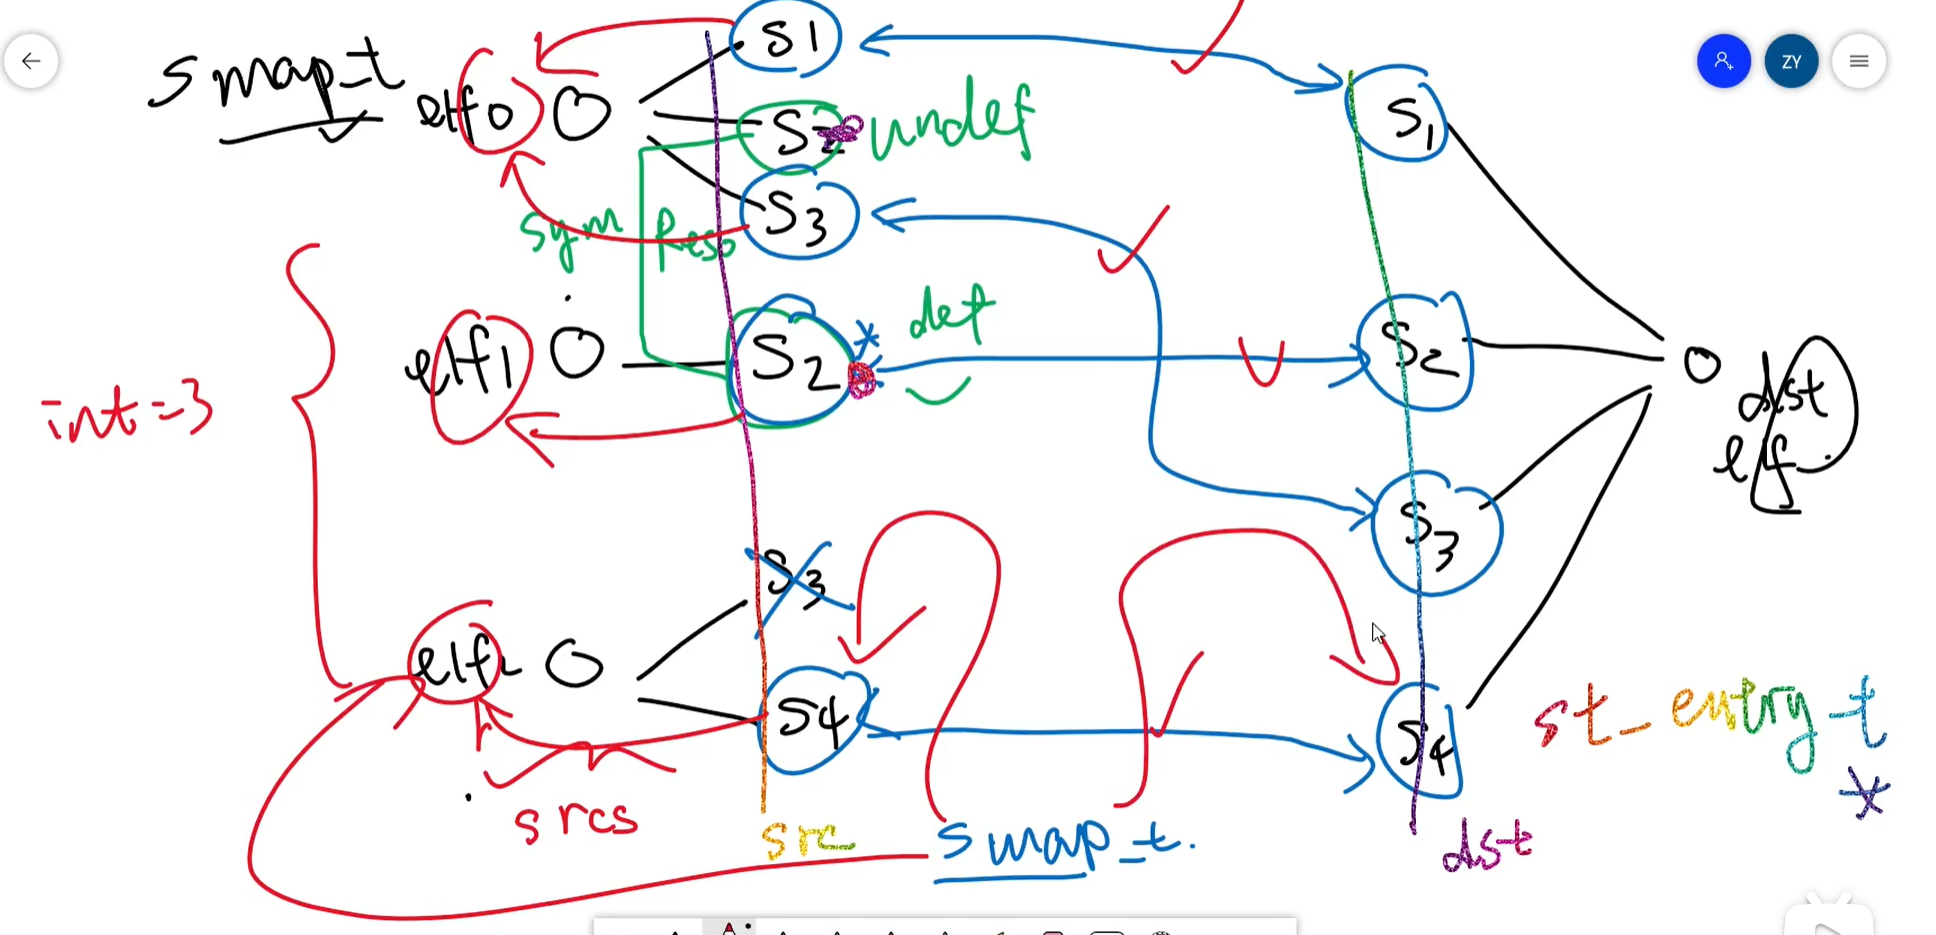 smap_t
elf0 O
S1
S2 undef
S3
sym Reso
elf1 O
S2 * def
int=3
S3
elf2 O
S4
srcs
src
smap_t.
S1
S2
S3
S4
O dst
elf
dst
st_entry_t
*
ZY